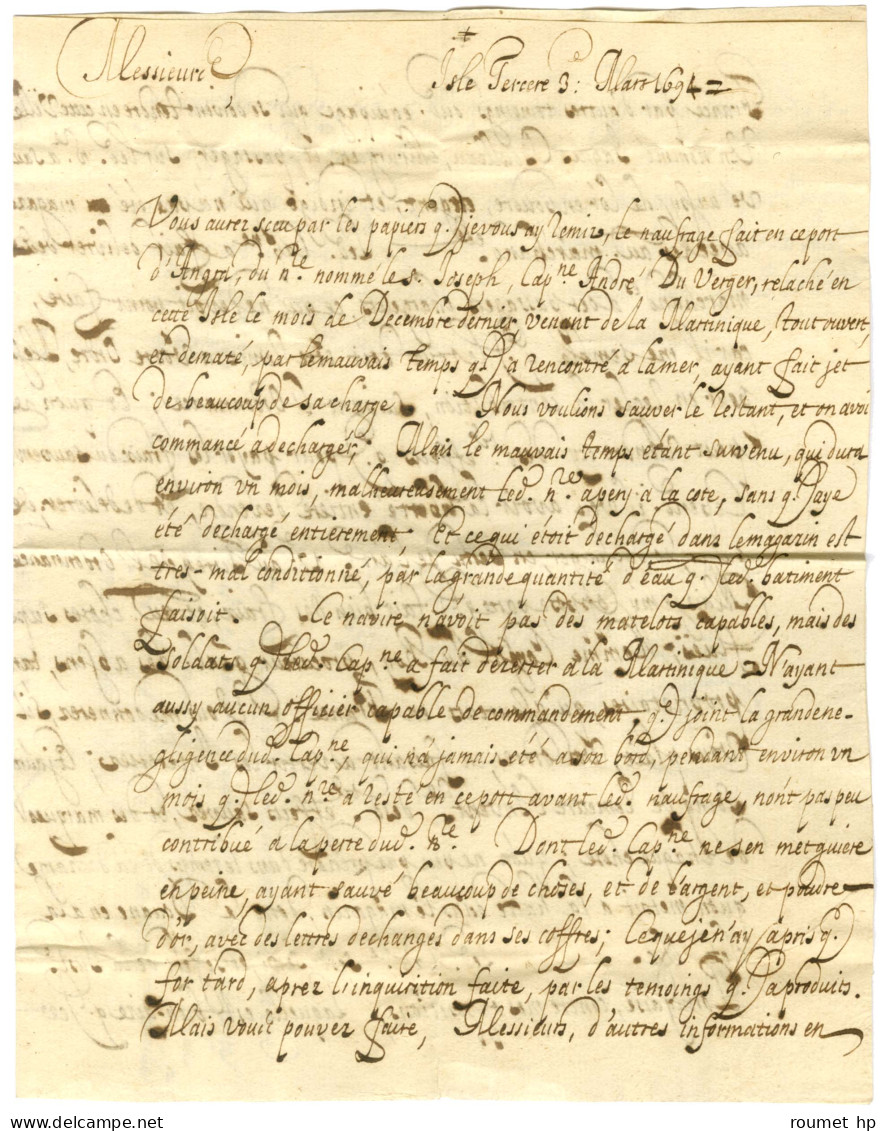 Messieurs
Isle Tercere 3e: Mars 1694 =
Vous aurez sceu par les papiers q. je vous ay remiz, le naufrage fait en ce port
d'Angra, du n.re nommé le S. Joseph, Cap.ne André Du Verger, relaché en
cette Isle le mois de Decembre dernier, venant de la Martinique, tout ouvert,
et dematé, par le mauvais temps q. Il a rencontré a la mer, ayant fait jet
de beaucoup de sa charge Nous voulions sauver le restant, et on avoi
commancé a dechargér; Mais le mauvais temps étant survenu, qui dura
environ vn mois, malheureusement led. n.re a pery a la cote, sans q. Il aye
été dechargé entiérement, Et ce qui étoit dechargé dans le magazin est
tres-mal conditionné, par la grande quantité d'eau q. led. batiment
faisoit. Ce navire n'avoit pas des matelots capables, mais des
soldats q. led. Cap.ne a fait dézerter a la Martinique = N'ayant
aussy aucun officier capable de commandement, q. joint la grande ne-
gligence dud. Cap.ne, qui n'a jamais été a son bord, pendant environ vn
mois q. led. n.re a resté en ce port avant led. naufrage, n'ont pas peu
contribué a la perte dud. N.re Dont led. Cap.ne ne s'en met guiére
en peine, ayant sauvé beaucoup de choses, et de l'argent, et poudre
d'or, avec des lettres dechanges dans ses coffres; Ce que je n'ay apris q.
for tard, aprez l'inquisition faite, par les temoings q. Il a produits.
Mais vous pouvez faire, Messieurs, d'autres informations en
roumet hp